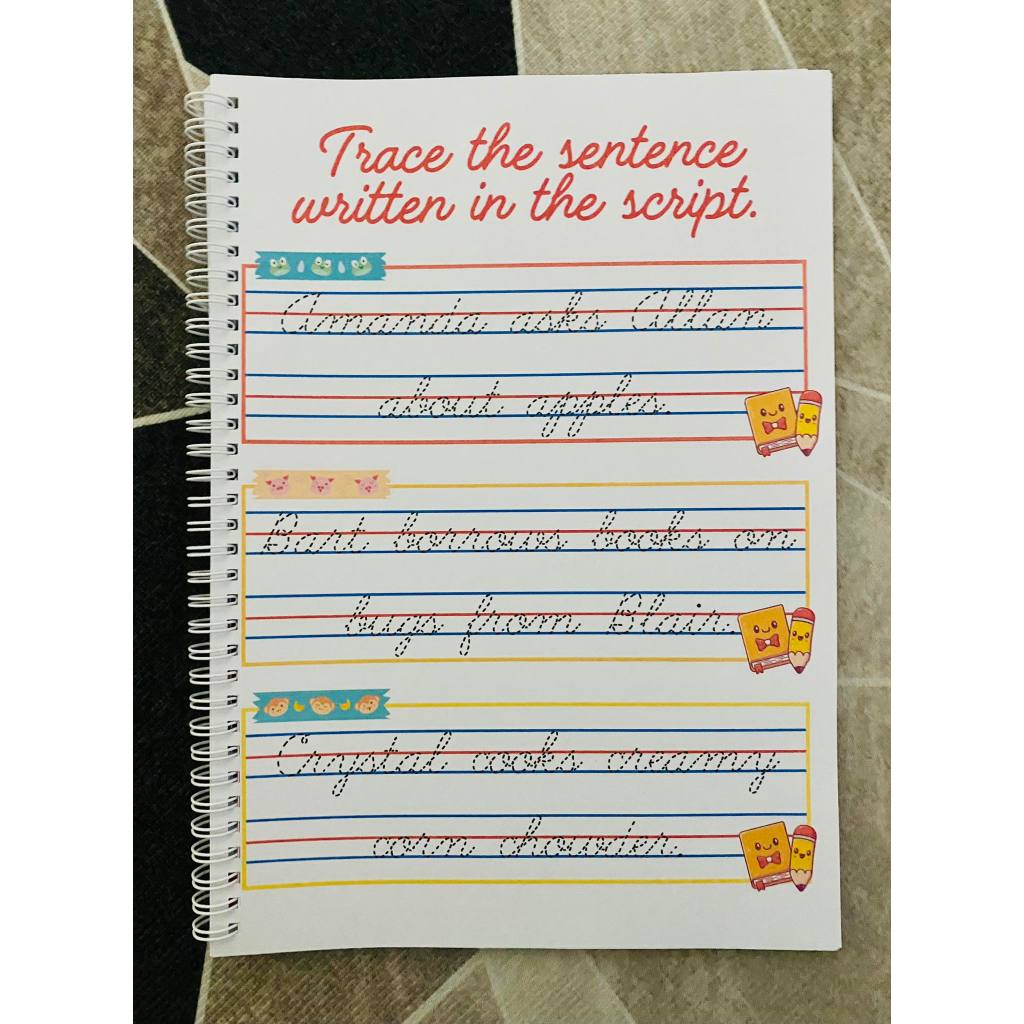 Trace the sentence
written in the script.
Amanda asks Allan
about apples.
Bart borrows books on
bugs from Blair.
Crystal cooks creamy
corn chowder.